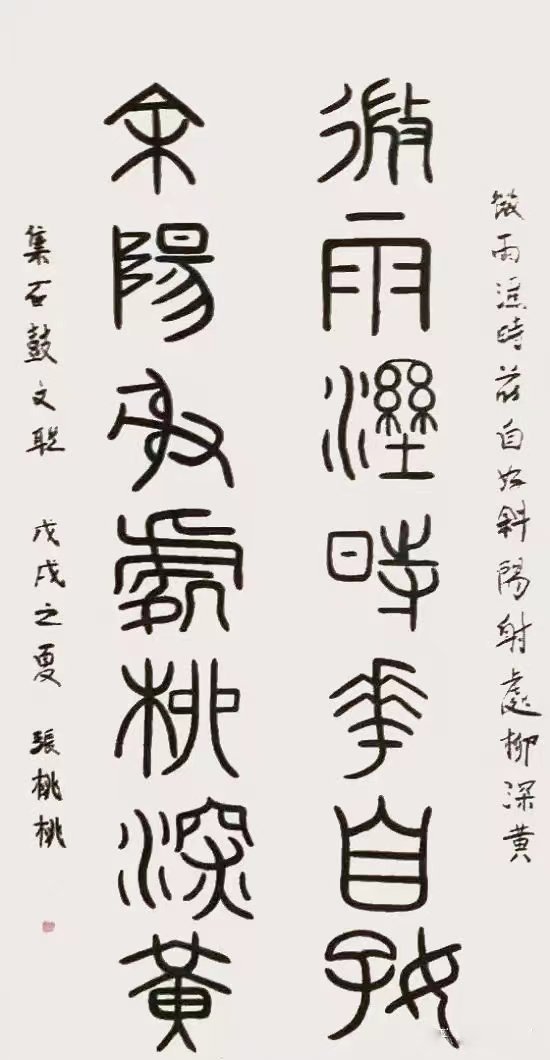 微雨溼時花自好斜陽射處柳深黄
微雨溼時華自好
余陽射處柳深黃
集石鼓文联 戊戌之夏 張桃桃